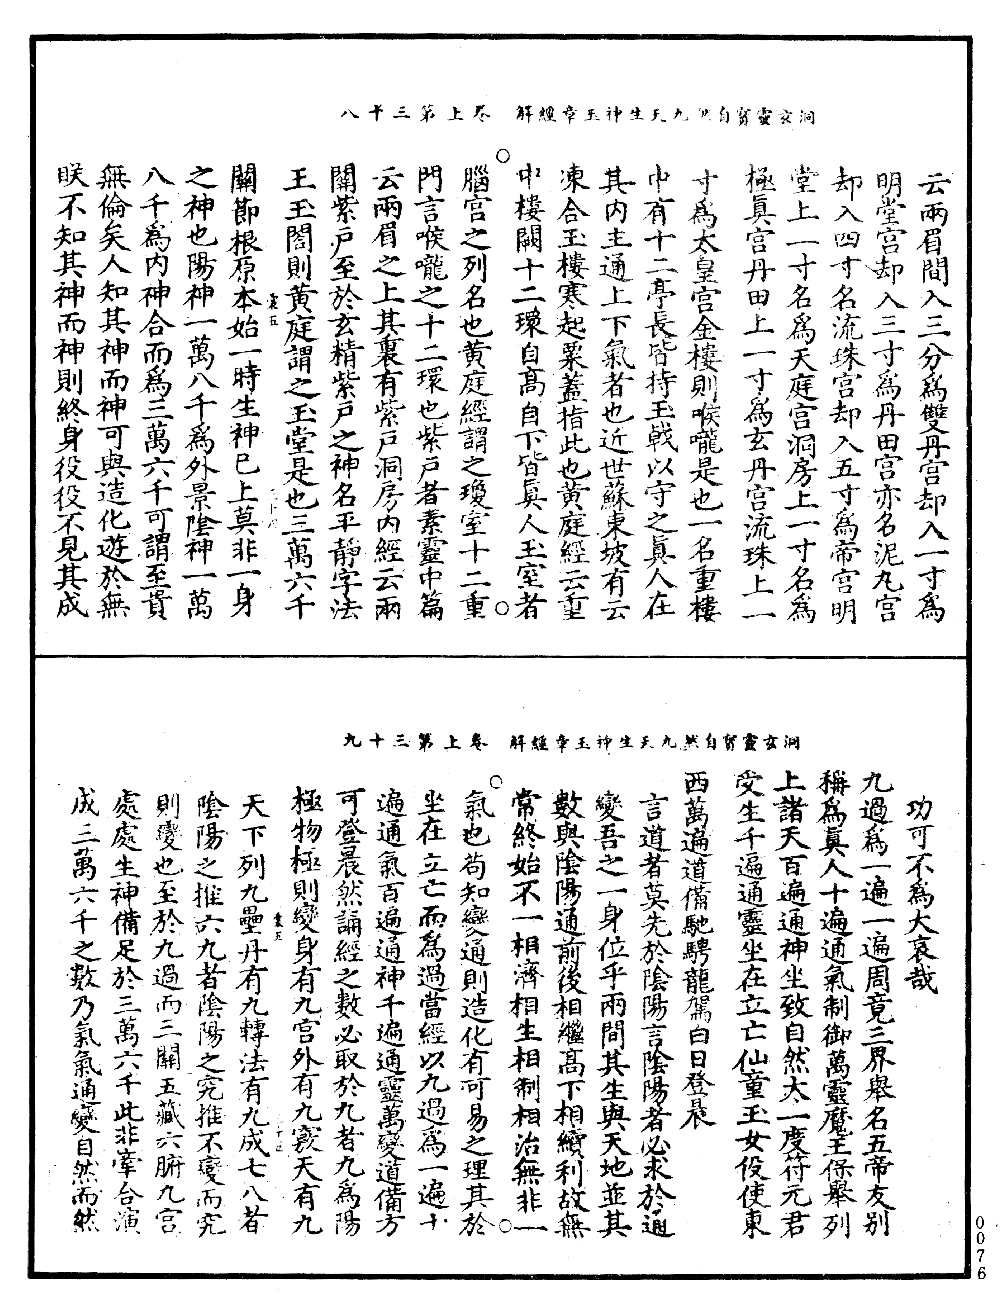 洞玄靈寶自然九天生神玉章經解　卷上第三十八
云兩眉間入三分為雙丹宮却入一寸為
明堂宮却入三寸為丹田宮亦名泥丸宮
却入四寸名流珠宮却入五寸為帝宮明
堂上一寸名為天庭宮洞房上一寸名為
極真宮丹田上一寸為玄丹宮流珠上一
寸為太皇宮金樓則喉嚨是也一名重樓
中有十二亭長皆持玉戟以守之真人在
其內主通上下氣者也近世蘇東坡有云
凍合玉樓寒起粟蓋指此也黃庭經云重
中樓闕十二環自高自下皆真人玉室者
腦宮之列名也黃庭經謂之瓊室十二重
門言喉嚨之十二環也紫戶者素靈中篇
云兩眉之上其裏有紫戶洞房內經云兩
闕紫戶至於玄精紫戶之神名平靜字法
王玉閤則黃庭謂之玉堂是也三萬六千
關節根原本始一時生神巳上莫非一身
之神也陽神一萬八千為外景陰神一萬
八千為內神合而為三萬六千可謂至貴
無倫矣人知其神而神可與造化遊於無
朕不知其神而神則終身役役不見其成
洞玄靈寶自然九天生神玉章經解　卷上第三十九
功可不為大哀哉
九過為一遍一遍周竟三界舉名五帝友別
稱為真人十遍通氣制御萬靈魔王保舉列
上諸天百遍通神坐致自然太一度符元君
受生千遍通靈坐在立亡仙童玉女役使東
西萬遍道備馳騁龍駕白日登晨
言道者莫先於陰陽言陰陽者必求於通
變吾之一身位乎兩間其生與天地並其
數與陰陽通前後相繼高下相續利故無
常終始不一相濟相生相制相治無非一
氣也苟知變通則造化有可易之理其於
坐在立亡而為過當經以九過為一遍十
遍通氣百遍通神千遍通靈萬變道備方
可登晨然誦經之數必取於九者九為陽
極物極則變身有九宮外有九竅天有九
天下列九壘丹有九轉法有九成七八者
陰陽之推六九者陰陽之究推不變而究
則變也至於九過而三關五藏六腑九宮
處處生神備足於三萬六千此非牽合演
成三萬六千之數乃氣氣通變自然而然
0076